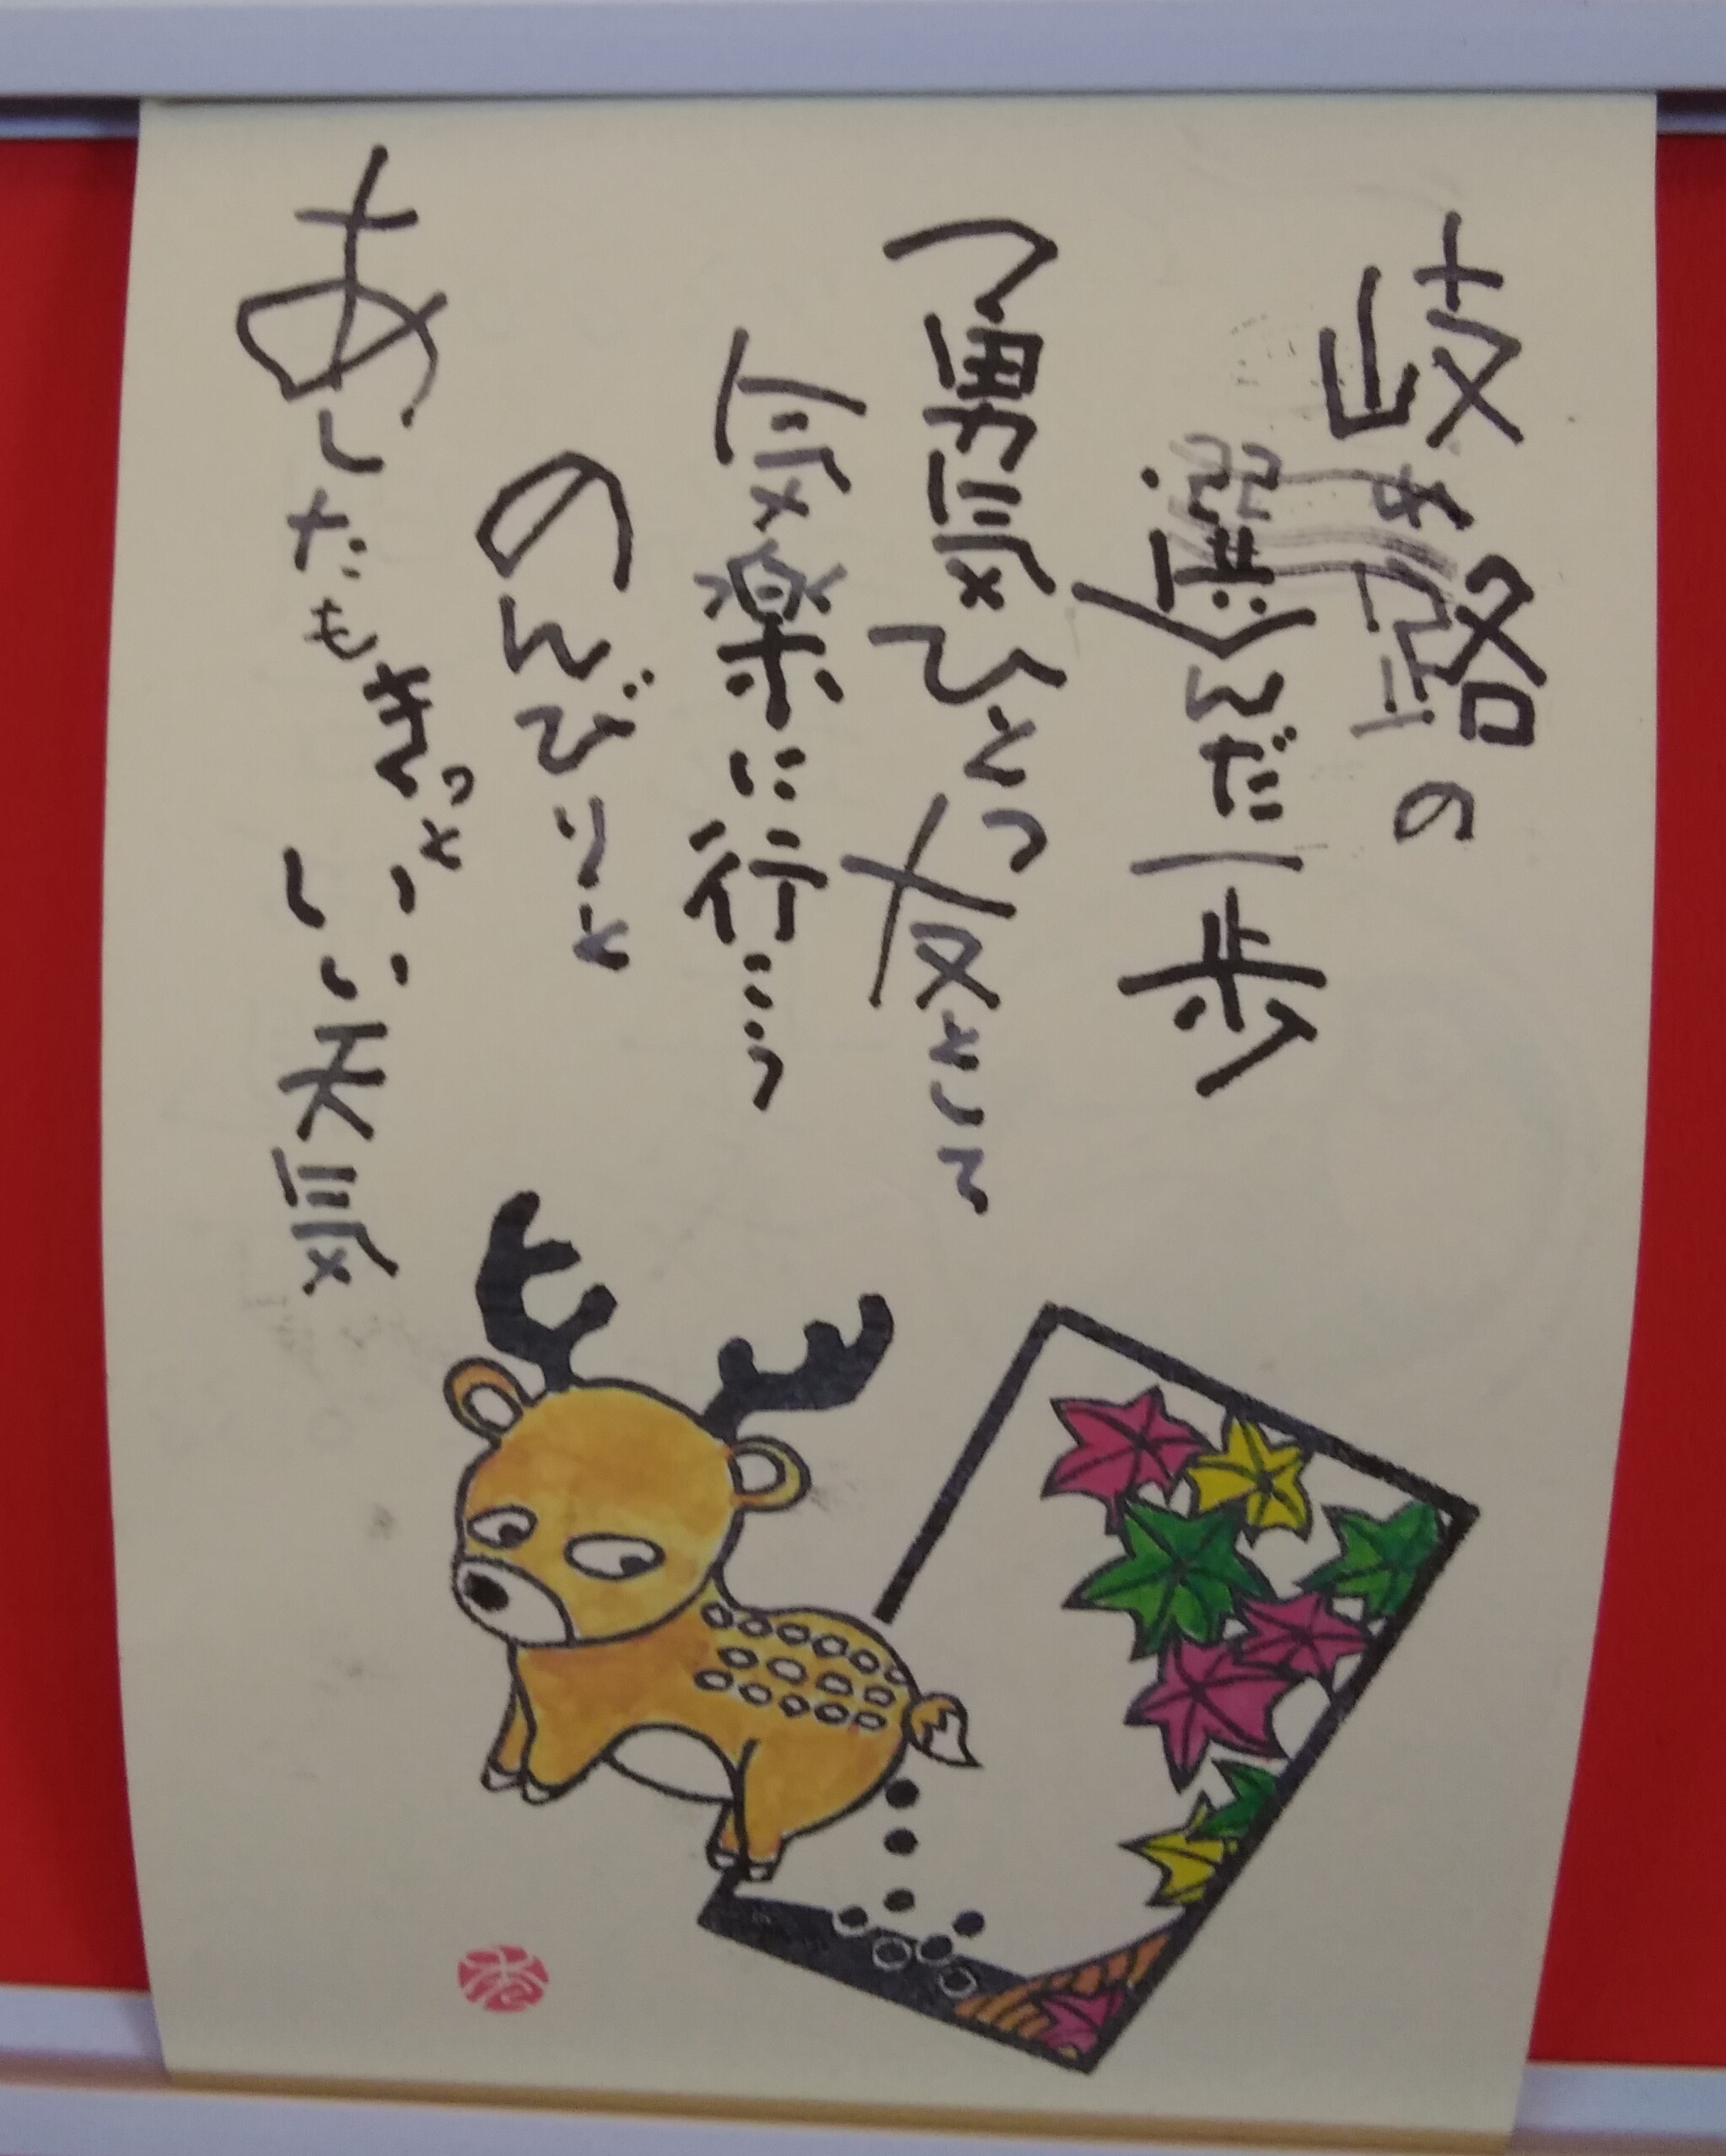 岐路の
選んだ一歩
勇気ひとつ友として
気楽に行こう
のんびりと
あしたもきっといい天気